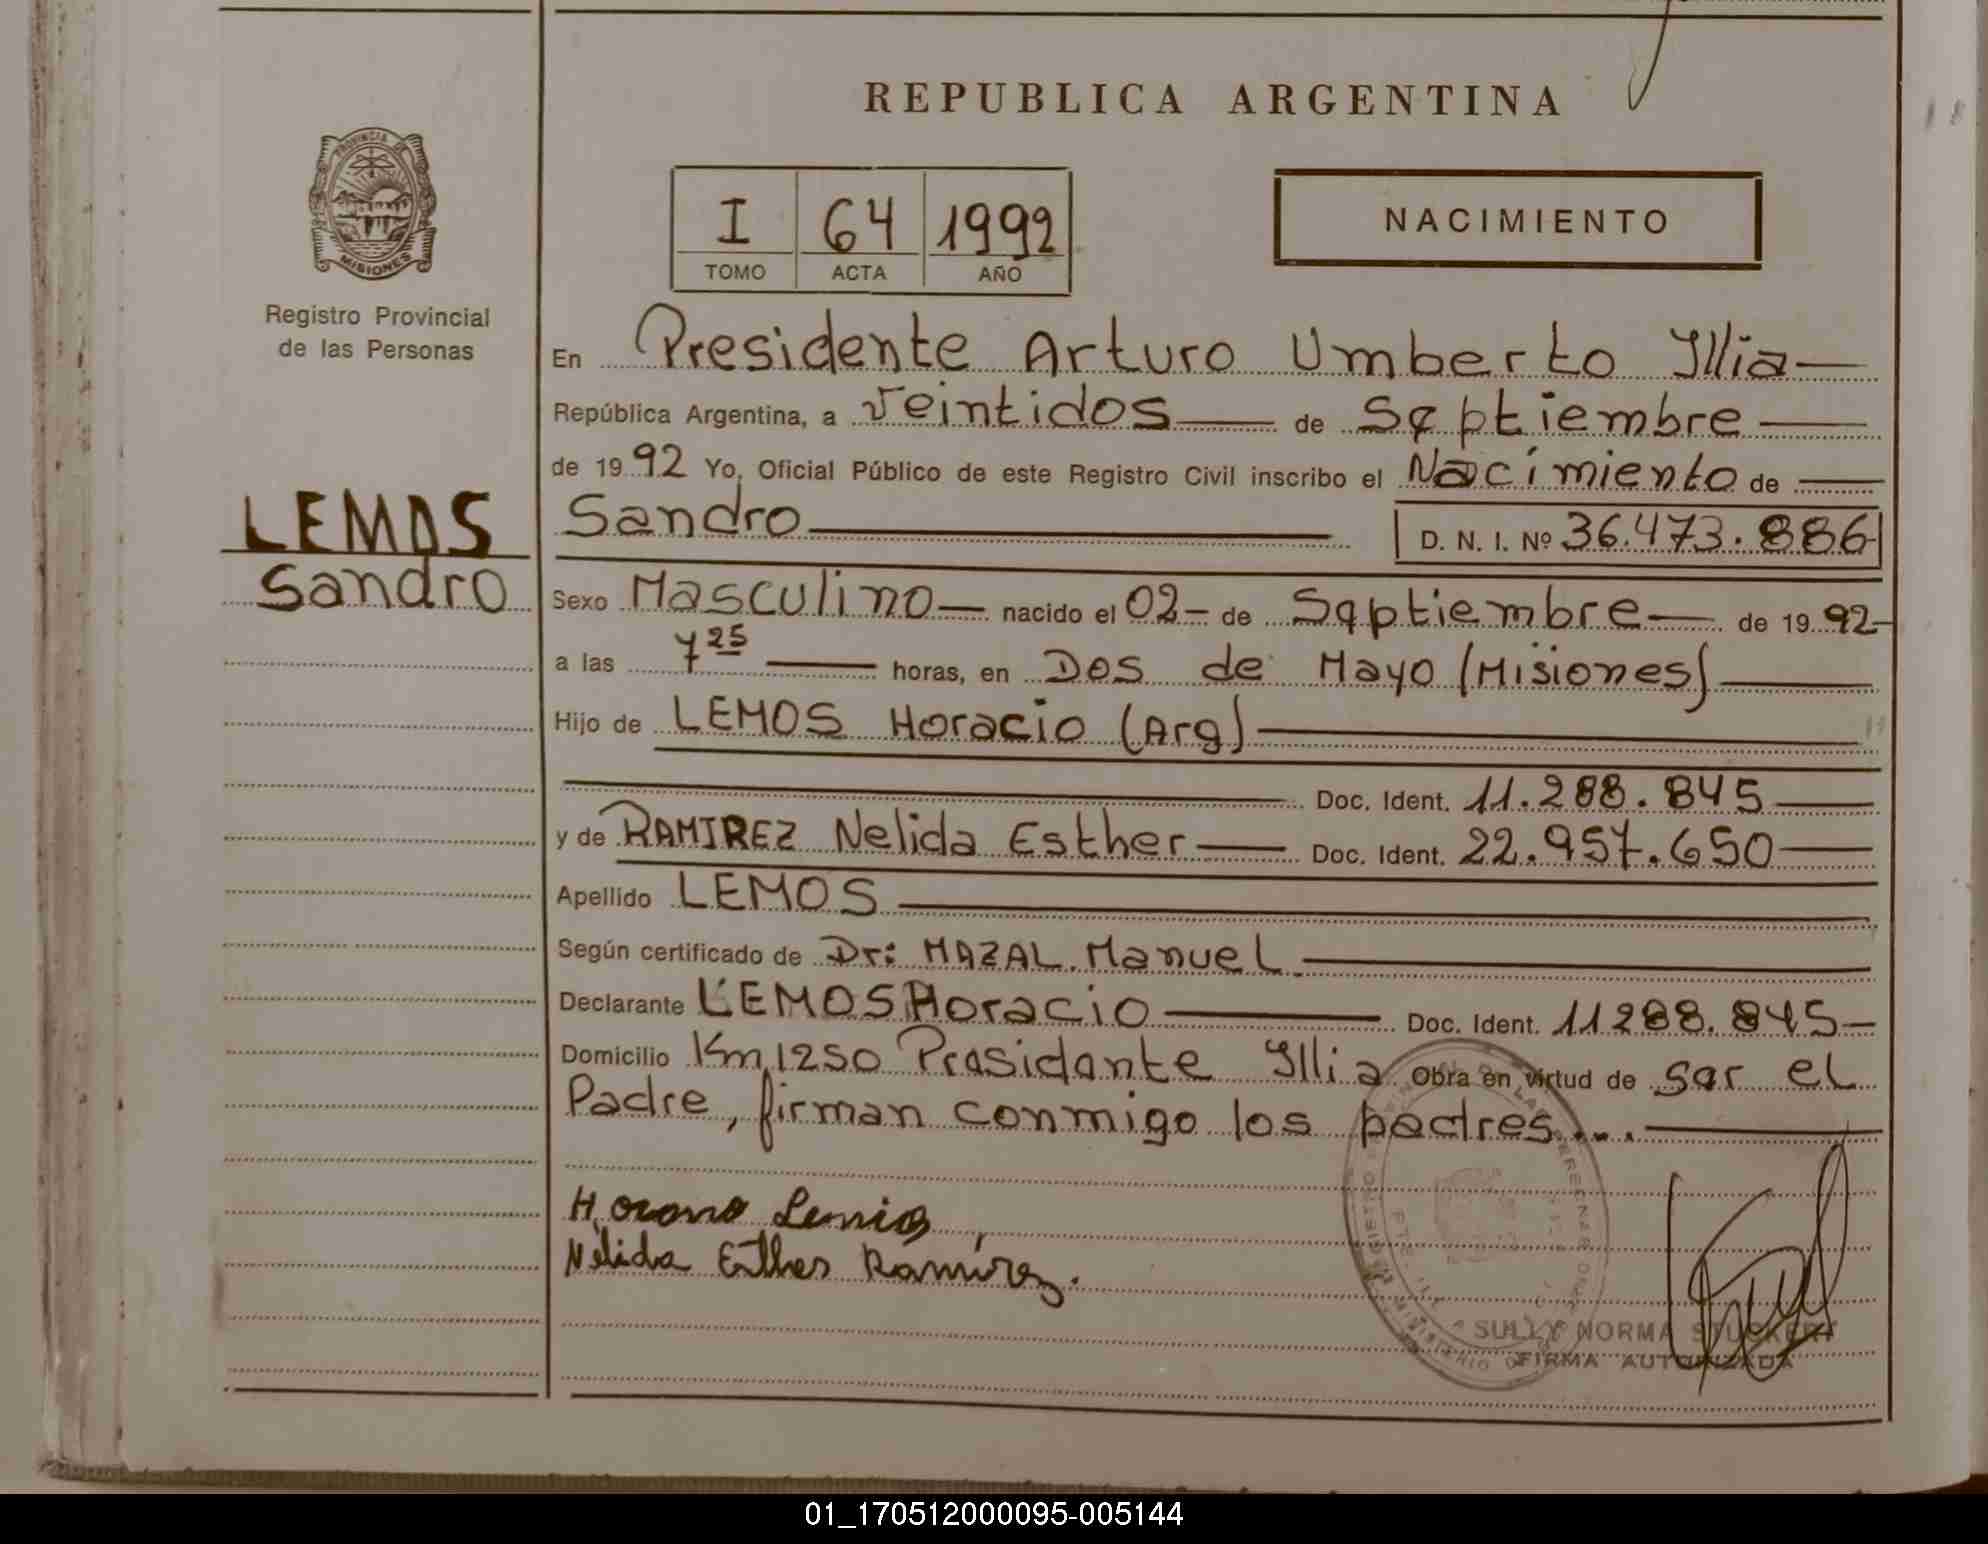 REPUBLICA ARGENTINA
PROVINCIA DE MISIONES
Registro Provincial
de las Personas
I 64 1992
TOMO ACTA AÑO
NACIMIENTO
En Presidente Arturo Umberto Illia
República Argentina, a veintidos de Septiembre
de 1992 Yo, Oficial Público de este Registro Civil inscribo el Nacimiento de
LEMOS
Sandro
Sandro D. N. I. Nº 36.473.886
Sexo Masculino nacido el 02 de Septiembre de 1992
a las 7 25 horas, en Dos de Mayo (Misiones)
Hijo de LEMOS Horacio (Arg)
Doc. Ident. 11.288.845
y de RAMIREZ Nelida Esther Doc. Ident. 22.957.650
Apellido LEMOS
Según certificado de Dr: MAZAL Manuel
Declarante LEMOS Horacio Doc. Ident. 11288.845
Domicilio Km 1250 Presidente Illia Obra en virtud de ser el
Padre, firman conmigo los padres...
Lemos
Nélida Esther Ramírez.
SULLY NORMA STUCKERT
FIRMA AUTORIZADA
01_170512000095-005144